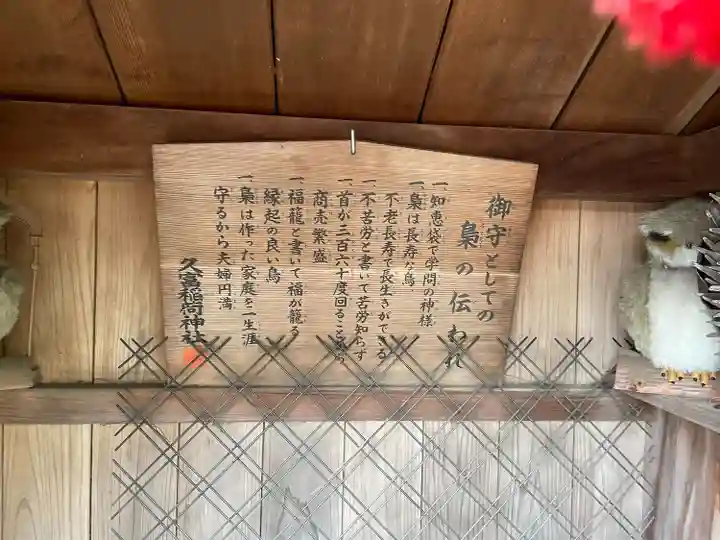 御守としての
梟の伝われ
一、知恵袋で学問の神様
一、梟は長寿な鳥
不老長寿で長生きができる
一、不苦労と書いて苦労知らず
一、首が三百六十度回ること
商売繁盛
一、福籠と書いて福が籠る
縁起の良い鳥
一、梟は作った家庭を一生涯
守るから夫婦円満
久富稲荷神社